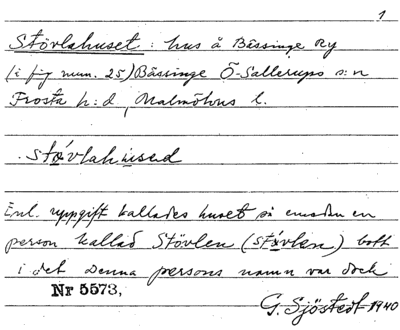 1
Stövlahuset: hus å Bässinge Ry
(i fig num. 25) Bässinge Ö-Sallerups s:n
Frosta h:d, Malmöhus l.
stövlahused
Enl. uppgift kallades huset så emedan en
person kallad Stövlen (stövlen) bott
i det Denna persons namn var dock
Nr 5573,
G. Sjöstedt 1940